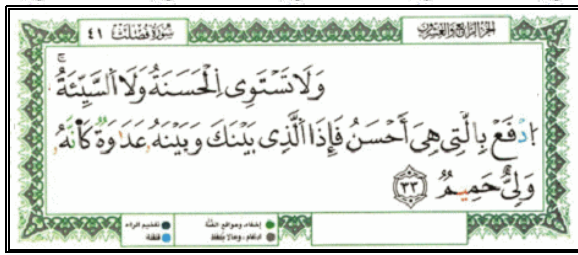 الجزء الرابع والعشرون
سورة فصلت ٤١
وَلَا تَسْتَوِى الْحَسَنَةُ وَلَا السَّيِّئَةُ ۚ
ادْفَعْ بِالَّتِى هِىَ أَحْسَنُ فَإِذَا الَّذِى بَيْنَكَ وَبَيْنَهُ عَدَاوَةٌ كَأَنَّهُ
وَلِىٌّ حَمِيمٌ ٣٣
إخفاء، ومواقع الغُنَّة
تفخيم الراء
ادغام، ومالا يُلفظ
قلقلة